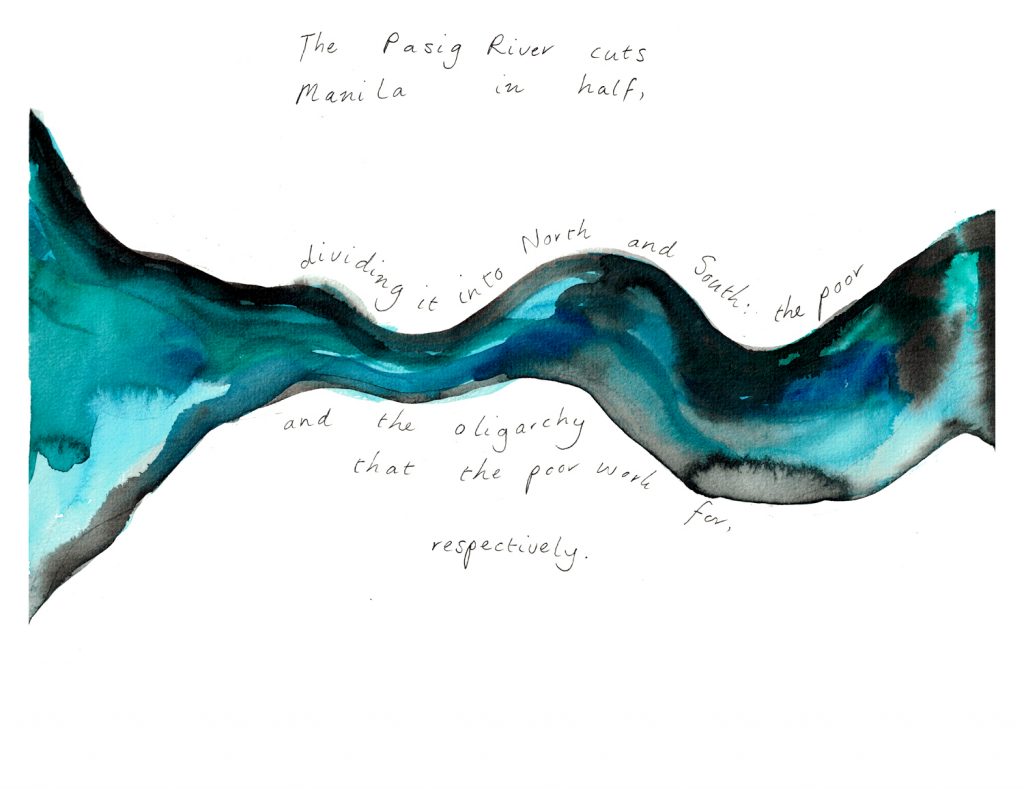 The Pasig River cuts
Manila in half,
dividing it into North and South: the poor
and the oligarchy
that the poor work for,
respectively.